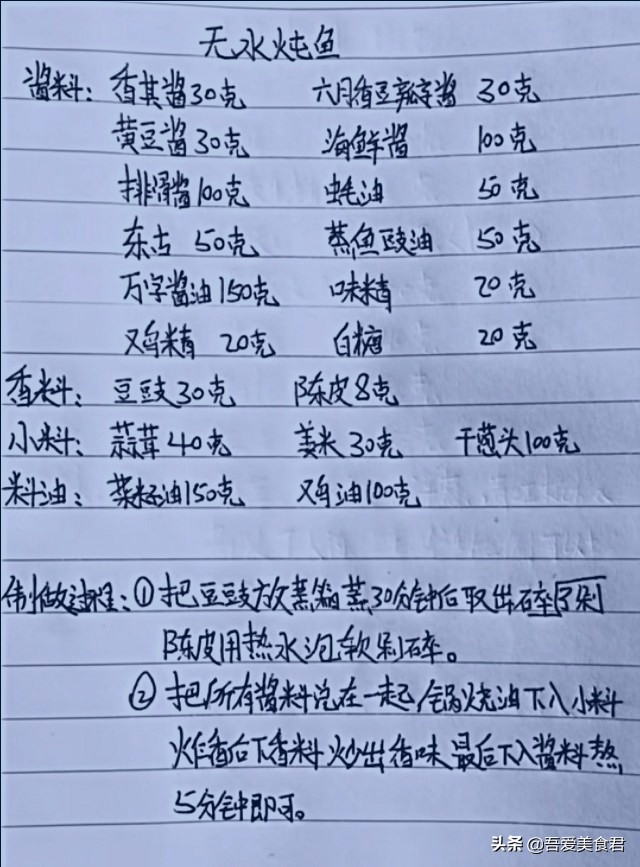 无水炖鱼
酱料：香其酱30克 六月香豆瓣酱 30克
黄豆酱30克 海鲜酱 100克
排骨酱100克 蚝油 50克
东古 50克 蒸鱼豉油 50克
万字酱油150克 味精 20克
鸡精 20克 白糖 20克
香料：豆豉30克 陈皮8克
小料：蒜茸40克 姜米30克 干葱头100克
料油：菜籽油150克 鸡油100克
制做过程：①把豆豉放蒸箱蒸30分钟后取出碎
陈皮用热水泡软剁碎。
②把所有酱料兑在一起，锅烧油下入小料
炸香后下香料炒出香味最后下入酱料熬
5分钟即可。
头条 @吾爱美食君